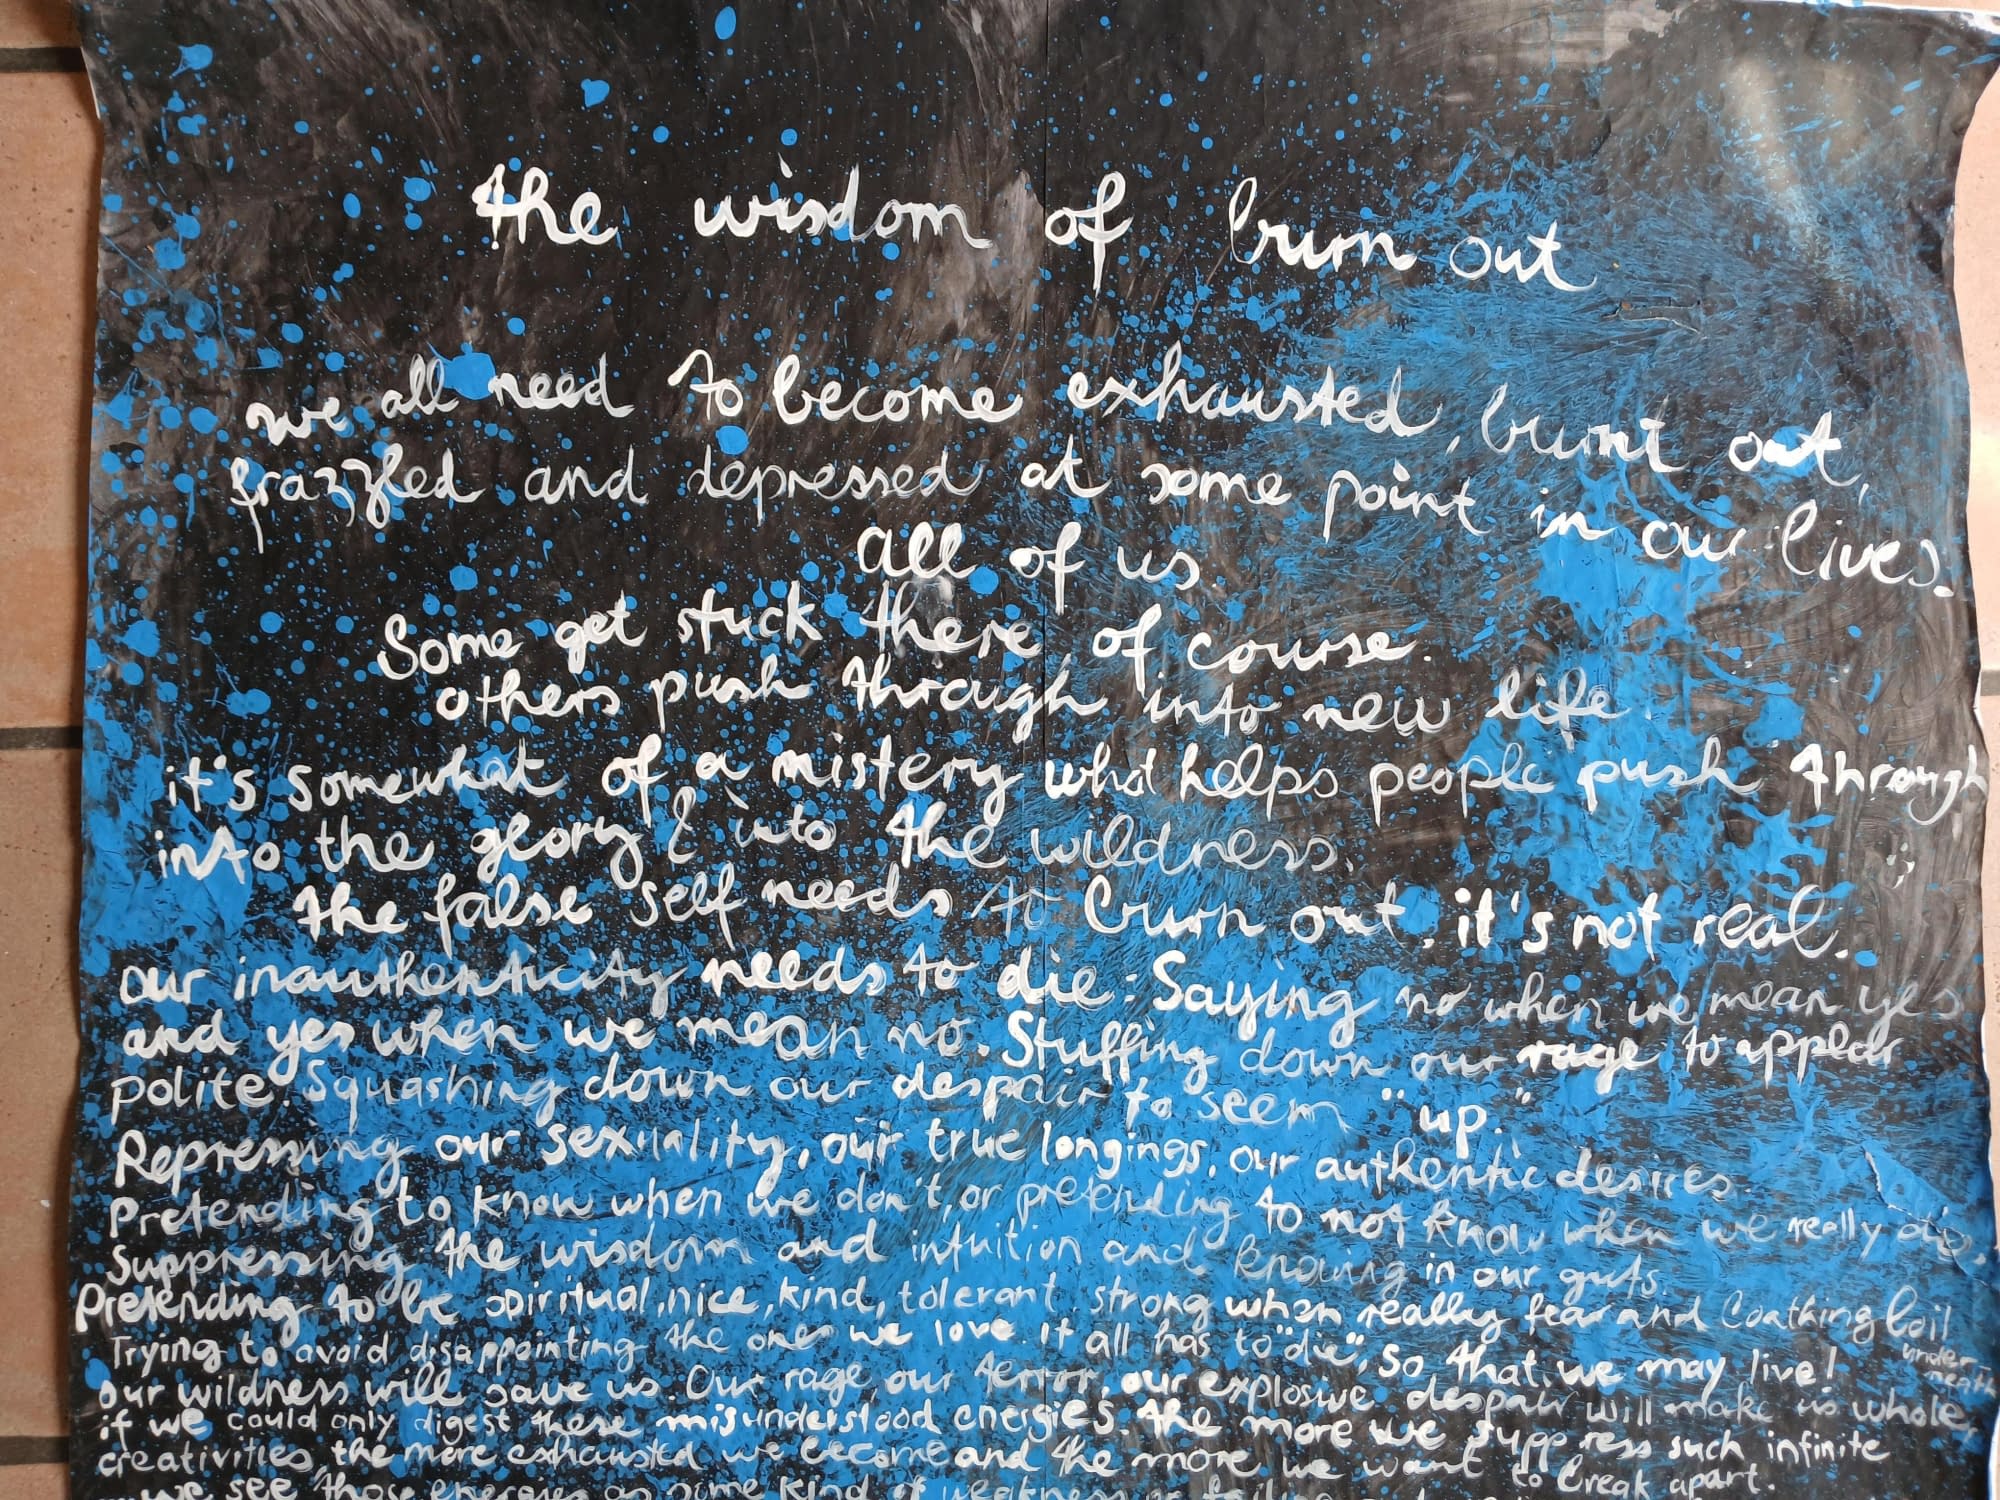 the wisdom of burn out
we all need to become exhausted, burnt out,
frazzled and depressed at some point in our lives.
all of us
Some get stuck there, of course.
others push through into new life.
it's somewhat of a mistery what helps people push through
into the glory & into the wildness.
the false self needs to burn out. it's not real.
our inauthenticity needs to die. Saying no when we mean yes
and yes when we mean no. Stuffing down our rage to appear
polite. Squashing down our despair to seem "up."
Repressing our sexuality, our true longings, our authentic desires.
Pretending to know when we don't, or pretending to not know when we really do.
Suppressing the wisdom and intuition and knowing in our guts.
Pretending to be spiritual, nice, kind, tolerant, strong when really fear and Loathing boil
underneath
Trying to avoid disappointing the ones we love. it all has to "die", so that we may live!
our wildness will save us. Our rage, our terror, our explosive despair will make us whole,
if we could only digest these misunderstood energies. the more we suppress such infinite
creativities, the more exhausted we become and the more we want to break apart.
we see those energies as some kind of weakness or failing